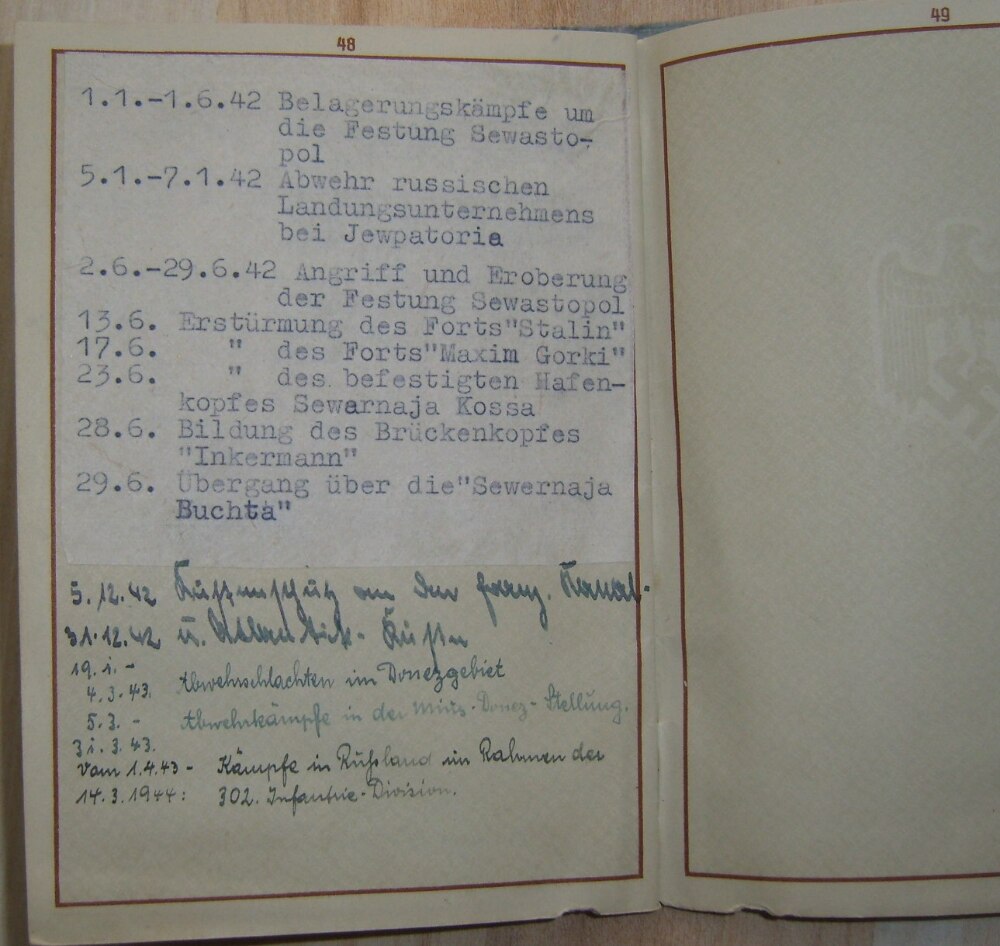 48
1.1.-1.6.42 Belagerungskämpfe um
die Festung Sewasto-
pol
5.1.-7.1.42 Abwehr russischen
Landungsunternehmens
bei Jewpatoria
2.6.-29.6.42 Angriff und Eroberung
der Festung Sewastopol
13.6. Erstürmung des Forts"Stalin"
17.6. " des Forts"Maxim Gorki"
23.6. " des befestigten Hafen-
kopfes Sewarnaja Kossa
28.6. Bildung des Brückenkopfes
"Inkermann"
29.6. Übergang über die"Sewernaja
Buchta"
5.12.42 Küstenschutz an der franz. Kanal-
31.12.42 u. Atlantik-Küste
19.1.-
4.3.43. Abwehrschlachten im Donezgebiet
5.3.- Abwehrkämpfe in der Mius-Donez-Stellung.
31.3.43.
Vom 1.4.43- Kämpfe in Rußland im Rahmen der
14.3.1944: 302. Infantrie-Division.
49